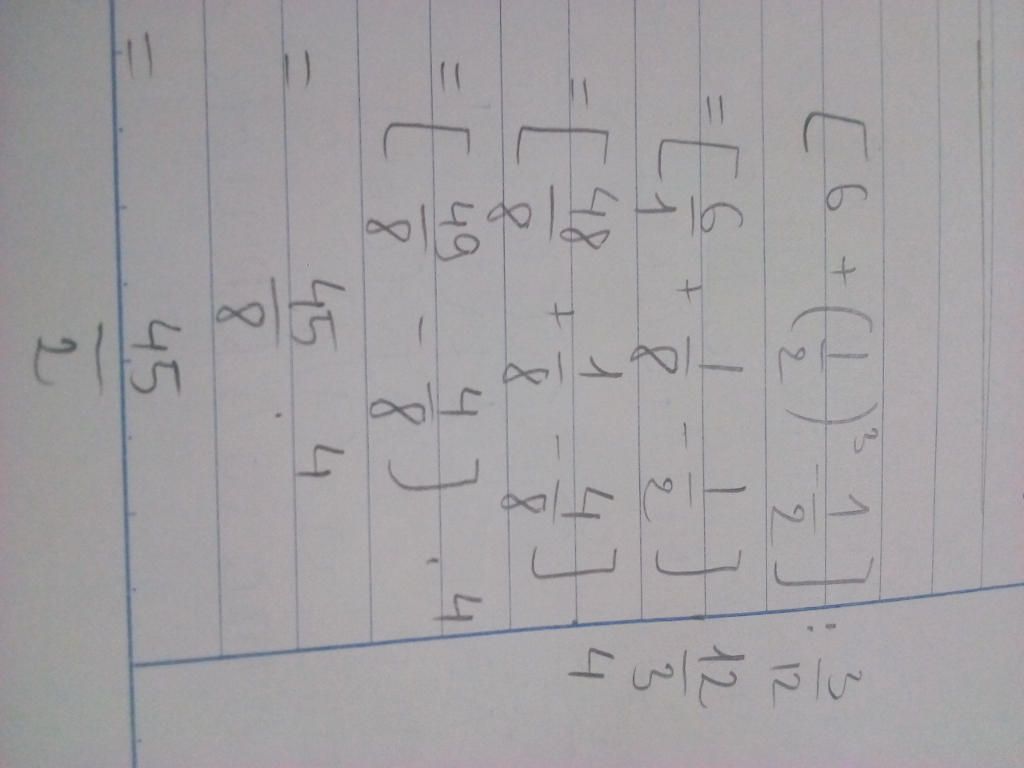 [6 + (1/2)³ - 1/2] : 3/12
= [6/1 + 1/8 - 1/2] 12/3
= [48/8 + 1/8 - 4/8] 4
= [49/8 - 4/8] · 4
= 45/8 · 4
= 45/2